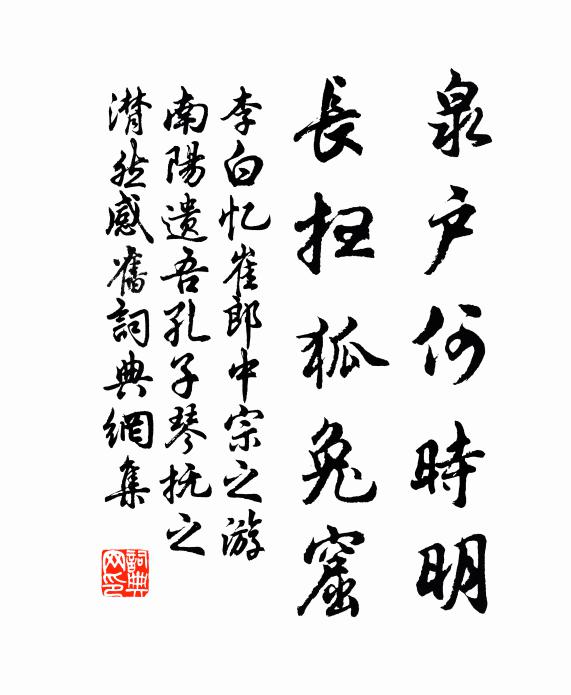 泉户何時明
長扫狐兔窟
李白忆崔郎中宗之游
南陽遗吾孔子琴抚之
潸然感舊詞典網集
詞典
网印